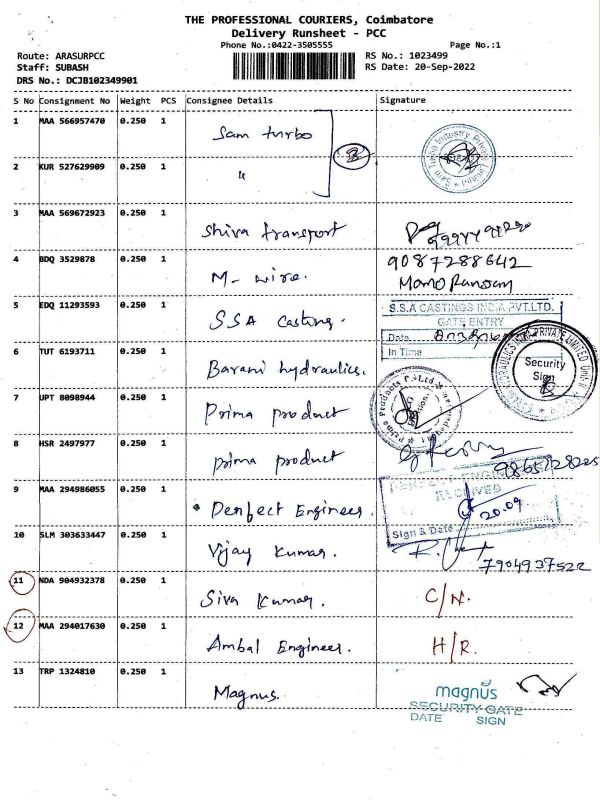 THE PROFESSIONAL COURIERS, Coimbatore
Delivery Runsheet - PCC
Phone No.:0422-3505555
Page No.:1
Route: ARASURPCC
RS No.: 1023499
Staff: SUBASH
RS Date: 20-Sep-2022
DRS No.: DCJB102349901
S No Consignment No Weight PCS Consignee Details Signature
1 MAA 566957470 0.250 1 Sam turbo
2 KUR 527629909 0.250 1 "
2
3 MAA 569672923 0.250 1 Shiva transport
4 BDQ 3529878 0.250 1 M- wire. 9087288642
5 EDQ 11293593 0.250 1 S.S.A Casting.
S.S.A CASTINGS INDIA PVT.LTD.
GATE ENTRY
Date
In Time
6 TUT 6193711 0.250 1 Barani hydraulics.
Security
Sign
7 UPT 8098944 0.250 1 Prima product
8 HSR 2497977 0.250 1 prima product
9 MAA 294986055 0.250 1 Denfect Engineer.
RECEIVED
20.09
Sign & Date
10 SLM 303633447 0.250 1 Vijay Kumar. 7904937522
11 NDA 904932378 0.250 1 Siva Kumar. C/N.
12 MAA 294017630 0.250 1 Ambal Engineer. H/R.
13 TRP 1324810 0.250 1 Magnus.
magnus
SECURITY GATE
DATE SIGN